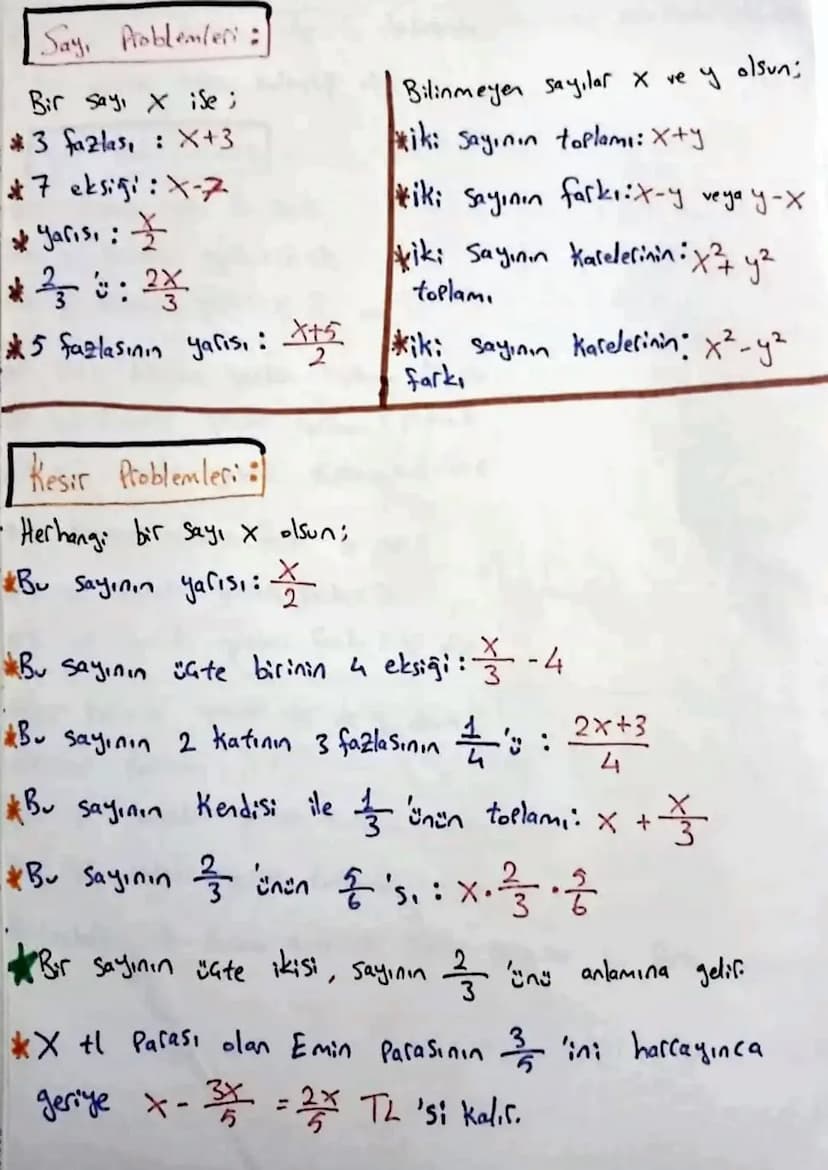 Sayı Problemleri :
Bir sayı x ise ;
* 3 fazlası : x+3
* 7 eksiği : x-7
* yarısı : x/2
* 2/3 'ü : 2x/3
* 5 fazlasının yarısı : x+5/2
Bilinmeyen sayılar x ve y olsun;
* iki sayının toplamı: x+y
* iki sayının farkı: x-y veya y-x
* iki sayının karelerinin : x²+ y²
toplamı
* iki sayının karelerinin: x²-y²
farkı
Kesir Problemleri :
Herhangi bir sayı x olsun;
* Bu sayının yarısı: x/2
* Bu sayının üçte birinin 4 eksiği : x/3 - 4
* Bu sayının 2 katının 3 fazlasının 1/4 'ü : 2x+3/4
* Bu sayının kendisi ile 1/3 'ünün toplamı: x + x/3
* Bu sayının 2/3 'ünün 5/6 'sı : x.2/3 .5/6
★ Bir sayının üçte ikisi, sayının 2/3 'ünü anlamına gelir.
* X tl parası olan Emin parasının 3/5 'ini harcayınca
geriye x - 3x/5 = 2x/5 TL 'si kalır.